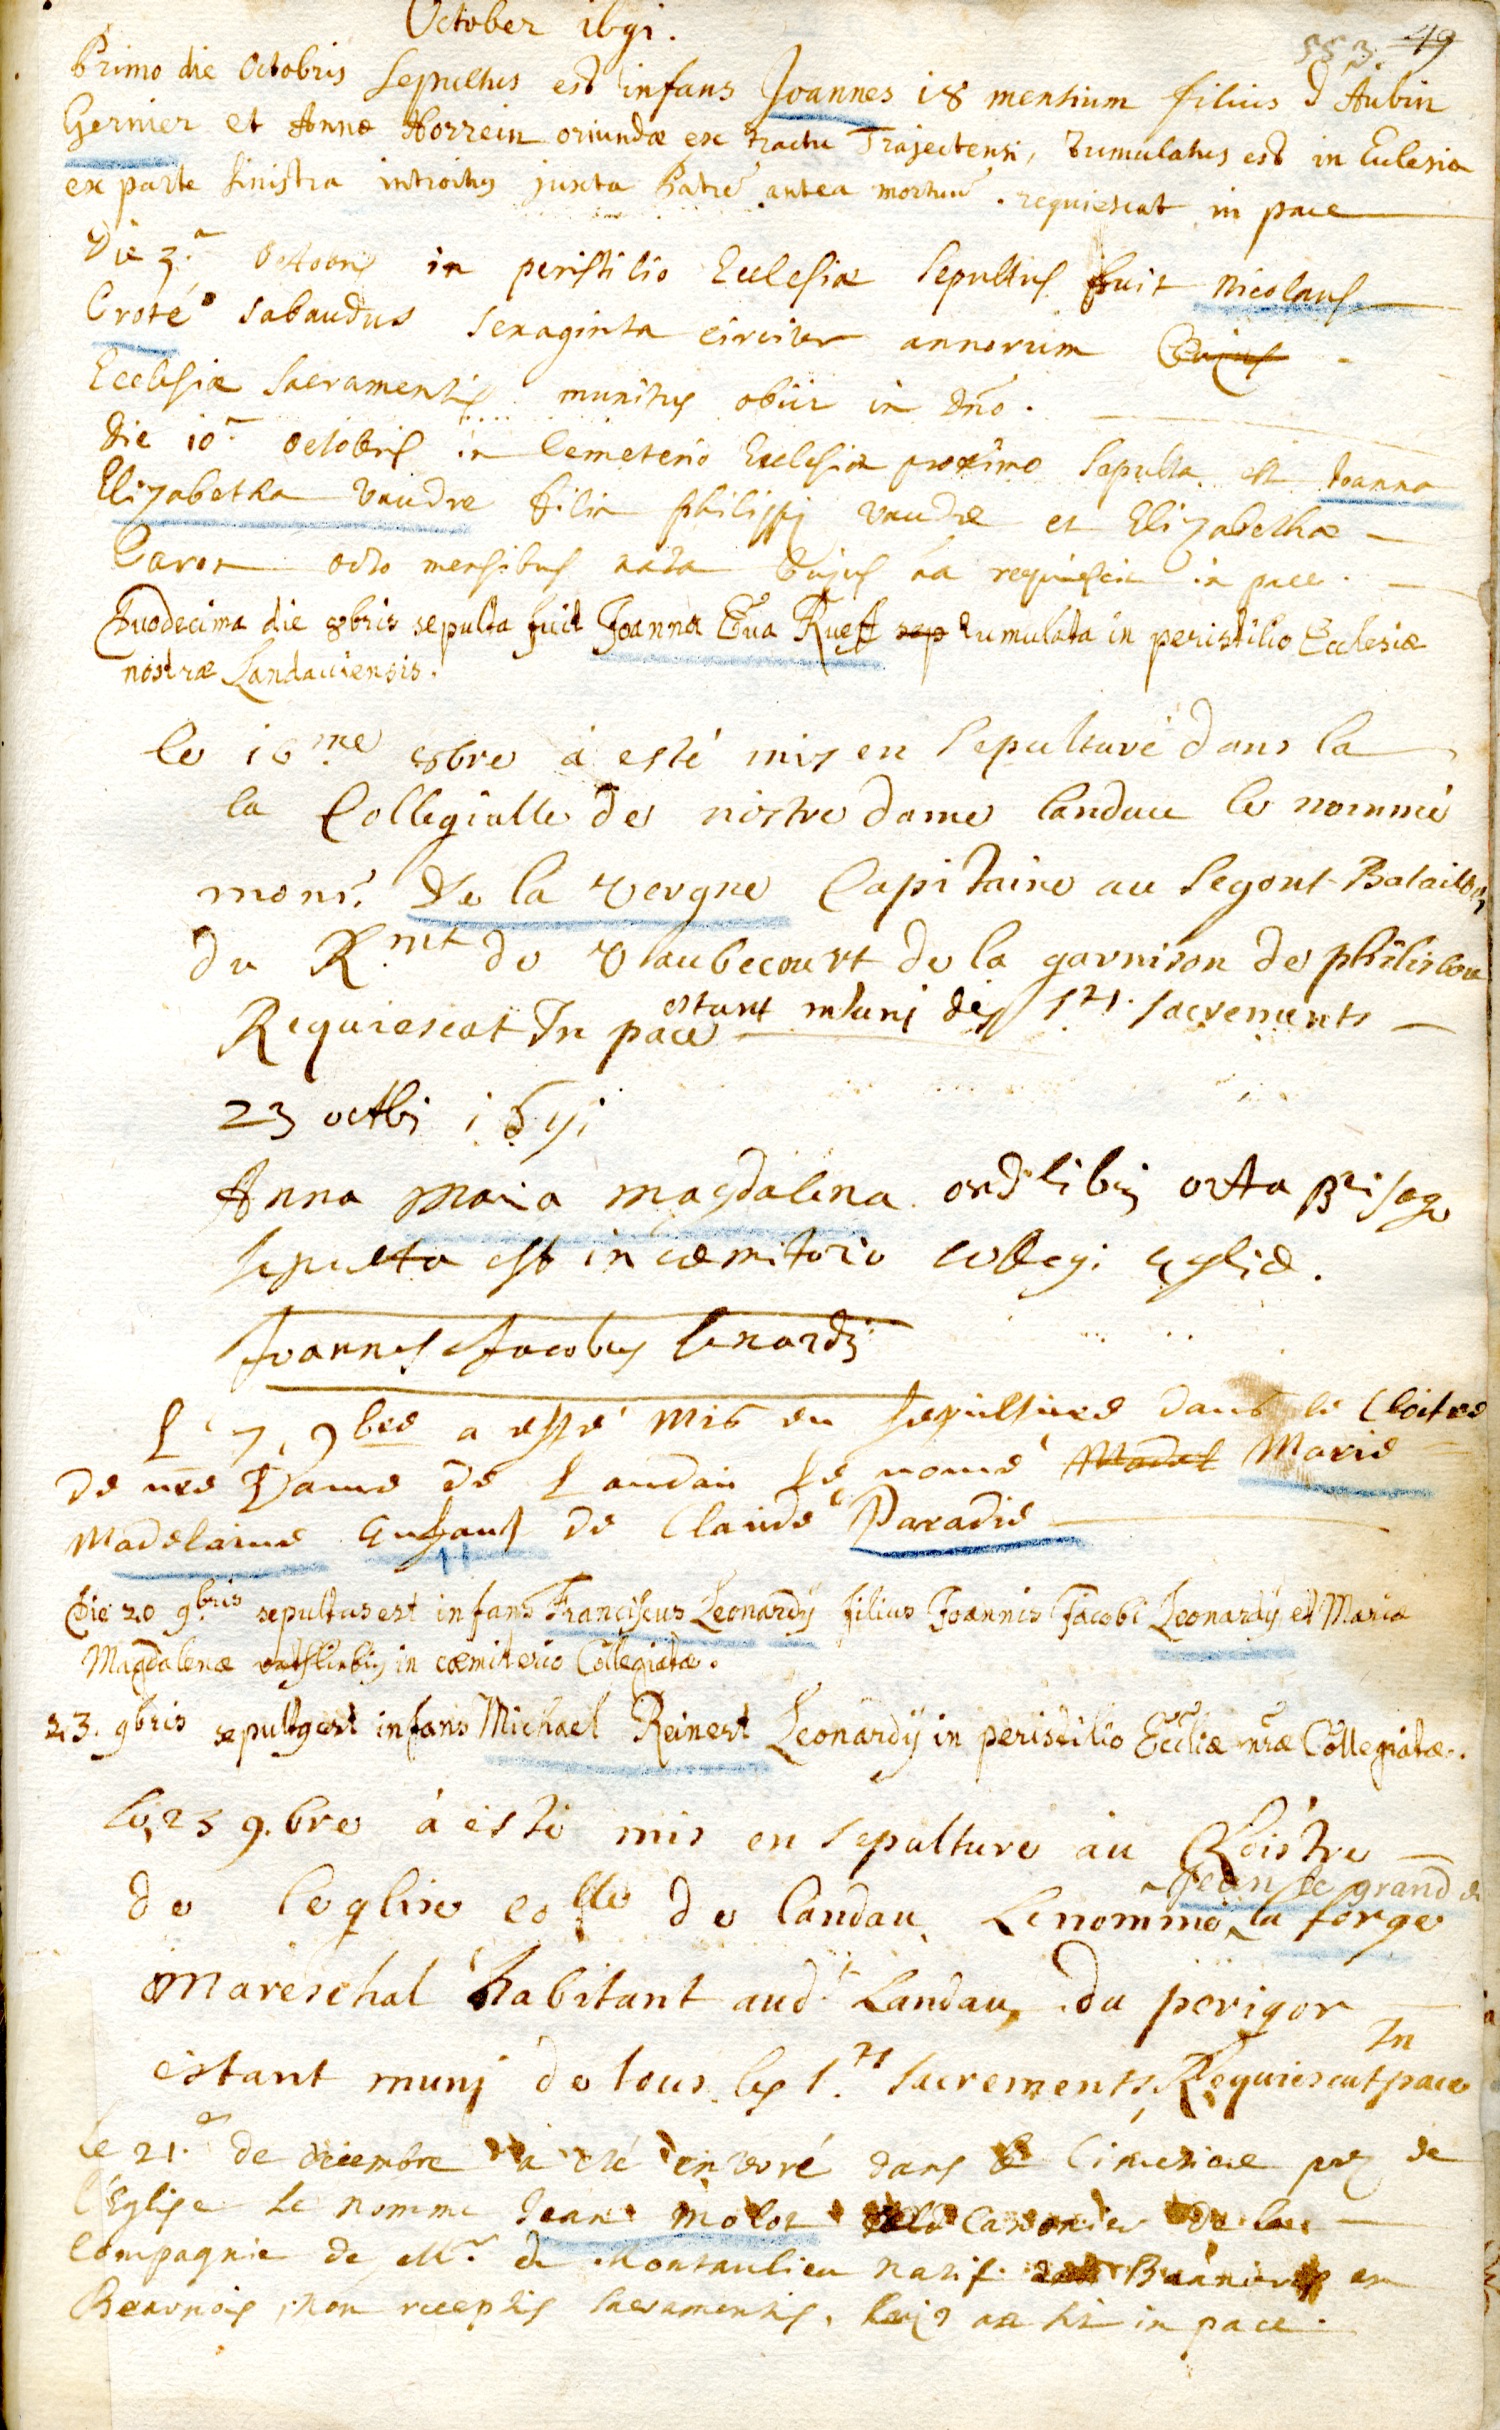 October 1691.
553. 49
Primo die Octobris sepultus est infans Joannes 18 mensium filius d Aubin
Gernier et Annæ Horrein oriundæ ex tractu Trajectensi, tumulatus est in Eclesia
ex parte sinistra introitus juxta Patrẽ antea mortuũ. requiescat in pace
Die 3.a Octobris in peristilio Ecclesiæ sepultus fuit Nicolaus
Croté sabaudus sexaginta circiter annorum
Ecclesiæ sacramentis munitus obiit in dño.
die 10.a octobris in Cemeterio Ecclesiæ proximo sepulta est Joanna
Elizabetha Vaudre filia philippi Vaudre et Elizabethæ
Caron octo mensibus nata Cujus aã requiescit in pace.
Duodecima die 8bris sepulta fuit Joanna Eva Rueff sep tumulata in peristilio Ecclesiæ
nostræ Landaviensis.
le 16.me 8bre à esté mis en sepulture dans la
la Collegialle de nostre dame landau le nommé
monsr. De la Vergne Capitaine au segont Bataillon
du R.mt de Vaubecourt de la garnison de philisbou
Requiescat In pace estant muni des Sts. sacrements
23 octbi 1691
Anna Maria Magdalena ortlibin orta
sepulta est in cœmitorio collegi
Joannes Jacobus Lenardi
Le 7. 9bre a esté mis en sepulture dans le Cloitre
de nre Dame de Landau le nomé Madel Marie
Madelaine Enfant de Claude Paradis
Die 20 9bris sepultus est infans Franciscus Leonardÿ filius Joannis Jacobi Leonardÿ et Mariæ
Magdalenæ in cœmiterio Collegiatæ.
23. 9bris sepult9 est infans Michael Reinert Leonardÿ in peristilio Eccliæ nræ Collegiatæ.
le 25 9.bre à esté mis en sepulture au Cloistre
Jean le grand d
de leglise colle de landau, Le nommé la forge
Mareschal habitant audt Landau, du perigor
estant munj de tous les Sts sacrements, Requiescat In pace
Le 21.e de decembre a été enteré dans le Cimetiere prez de
l'Eglise le nomme Jean Molot Canonier de la
Compagnie de Mr. de Montaulieu natif en
Beaunois, non receptis sacramentis, in pace.